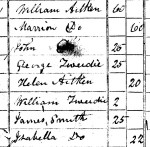 William Aitken 60
Marrion Do 60
John 20
George Tweedie 25
Helen Aitken 20
William Tweedie 2
James Smith 25
Isabella Do 22